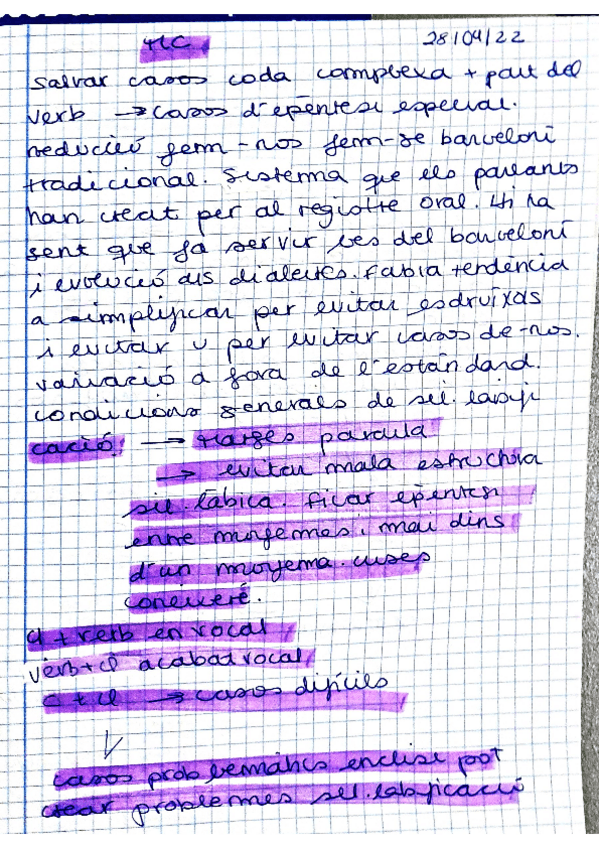 TLC 28/04/22
salvar casos coda complexa + part del
verb → casos d'epèntesi especial.
reducció fem-nos fem-se barceloní
tradicional. Sistema que els parlants
han creat per al registre oral. Hi ha
gent que fa servir les del barceloní
i evolució dls dialectes. Fabra tendència
a simplificar per evitar esdruíxas
i evitar u per evitar casos de -nos.
variació a fora de l'estàndard.
condicions generals de sil.labifi
cació: → Marges paraula
→ evitar mala estructura
sil.làbica. Ficar epèntesi
entre morfemes i mai dins
d'un morfema. cuses
coneixeré.
cl + verb en vocal
verb + cl acabat vocal
c + cl → casos difícils
casos problemàtics enclisi pot
crear problemes sil.labificació